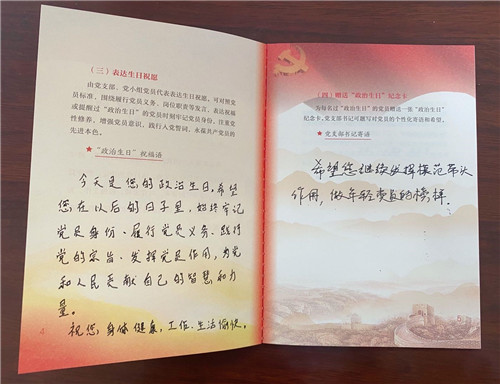 （三）表达生日祝愿
由党支部、党小组党员代表表达生日祝愿，可对照党
员标准、围绕履行党员义务、岗位职责等发言，表达祝福
或提醒过“政治生日”的党员时刻牢记党员身份，注重党
性修养，增强党员意识，践行入党誓词，永葆共产党员的
先进本色。
★“政治生日”祝福语
今天是您的政治生日，希望
您在以后的日子里，始终牢记
党员身份、履行党员义务、践行
党的宗旨、发挥党员作用，为党
和人民贡献自己的智慧和力
量。
祝您，身体健康，工作、生活愉快。
4
（四）赠送“政治生日”纪念卡
为每名过“政治生日”的党员赠送一张“政治生日”
纪念卡，党支部书记可题写对党员的个性化寄语和希望。
★党支部书记寄语
希望您继续发挥模范带头
作用，做年轻党员的榜样。